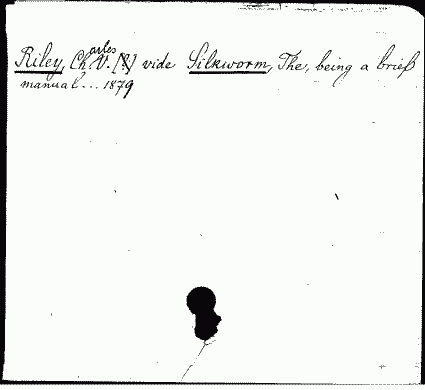 Riley, Charles V. [?] vide Silkworm, The, being a brief
manual ... 1879